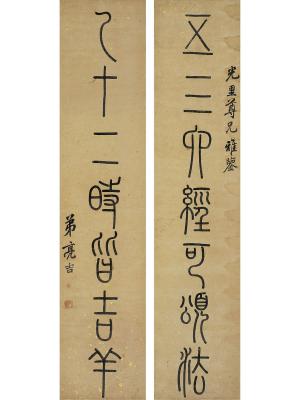 光里尊兄雅鑒
五三六經可頌法
凡十二時皆吉羊
弟亮吉